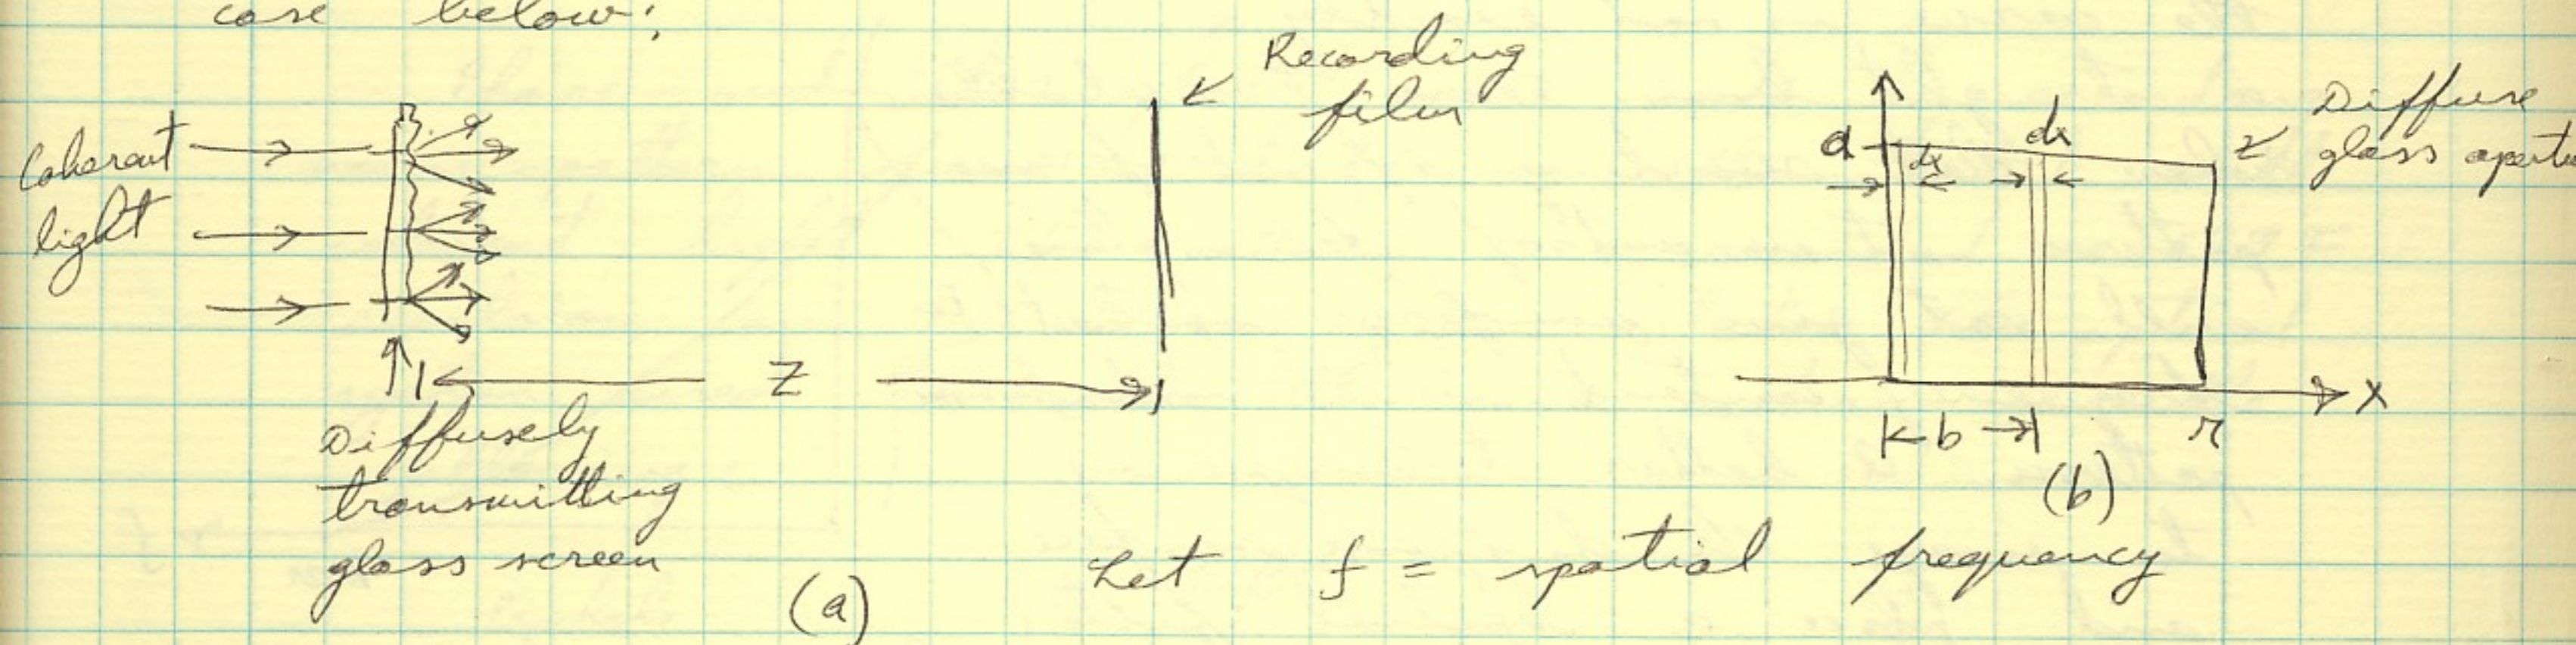 case below:
Recording
film
Coherent
light
Z
Diffusely
transmitting
glass screen
(a)
a
dx
dx
Diffuse
glass
x
b
r
(b)
Let f = spatial frequency